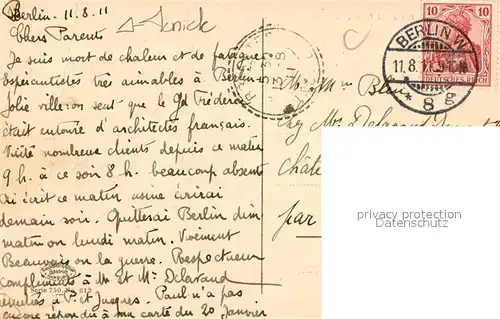 Berlin, 11.8.11
Chers Parents
Je suis mort de chaleur et de fatigue
Espérantistes très aimables à Berlin
Jolie ville: on sent que le Gd Fréderic
était entouré d'architectes français.
Visité nombreux clients depuis ce matin
9 h. à ce soir 8 h. beaucoup absents
Ai écrit ce matin usine écrirai
demain soir. Quitterai Berlin dim.
matin ou lundi matin. Vivement
Beauvais ou la guerre. Respectueux
compliments à Mr et Me Delavand
amitiés à P. et Jacques. Paul n'a pas
encore répondu à ma carte du 20 Janvier
Serie 750, No. 612
10 10
DEUTSCHES REICH
BERLIN W
11.8.11.9-10N.
* 8 g
Chez Mr Delavand
Châte
par
privacy protection
Datenschutz